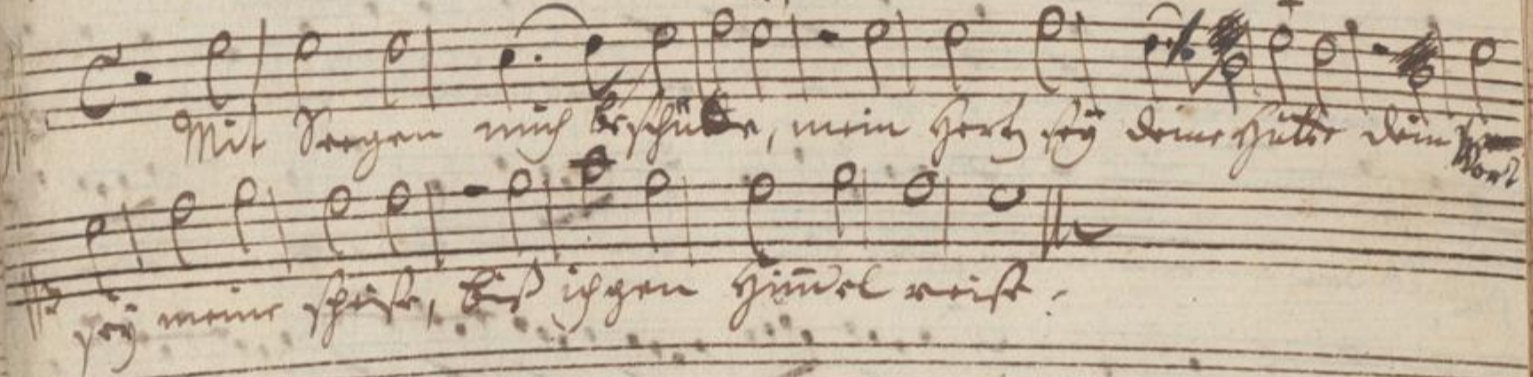 Mit Seegen mich beschütte, mein Hertz seÿ deine Hütte dein Wort
seÿ meine speise, biß ich gen Him̅el reise.